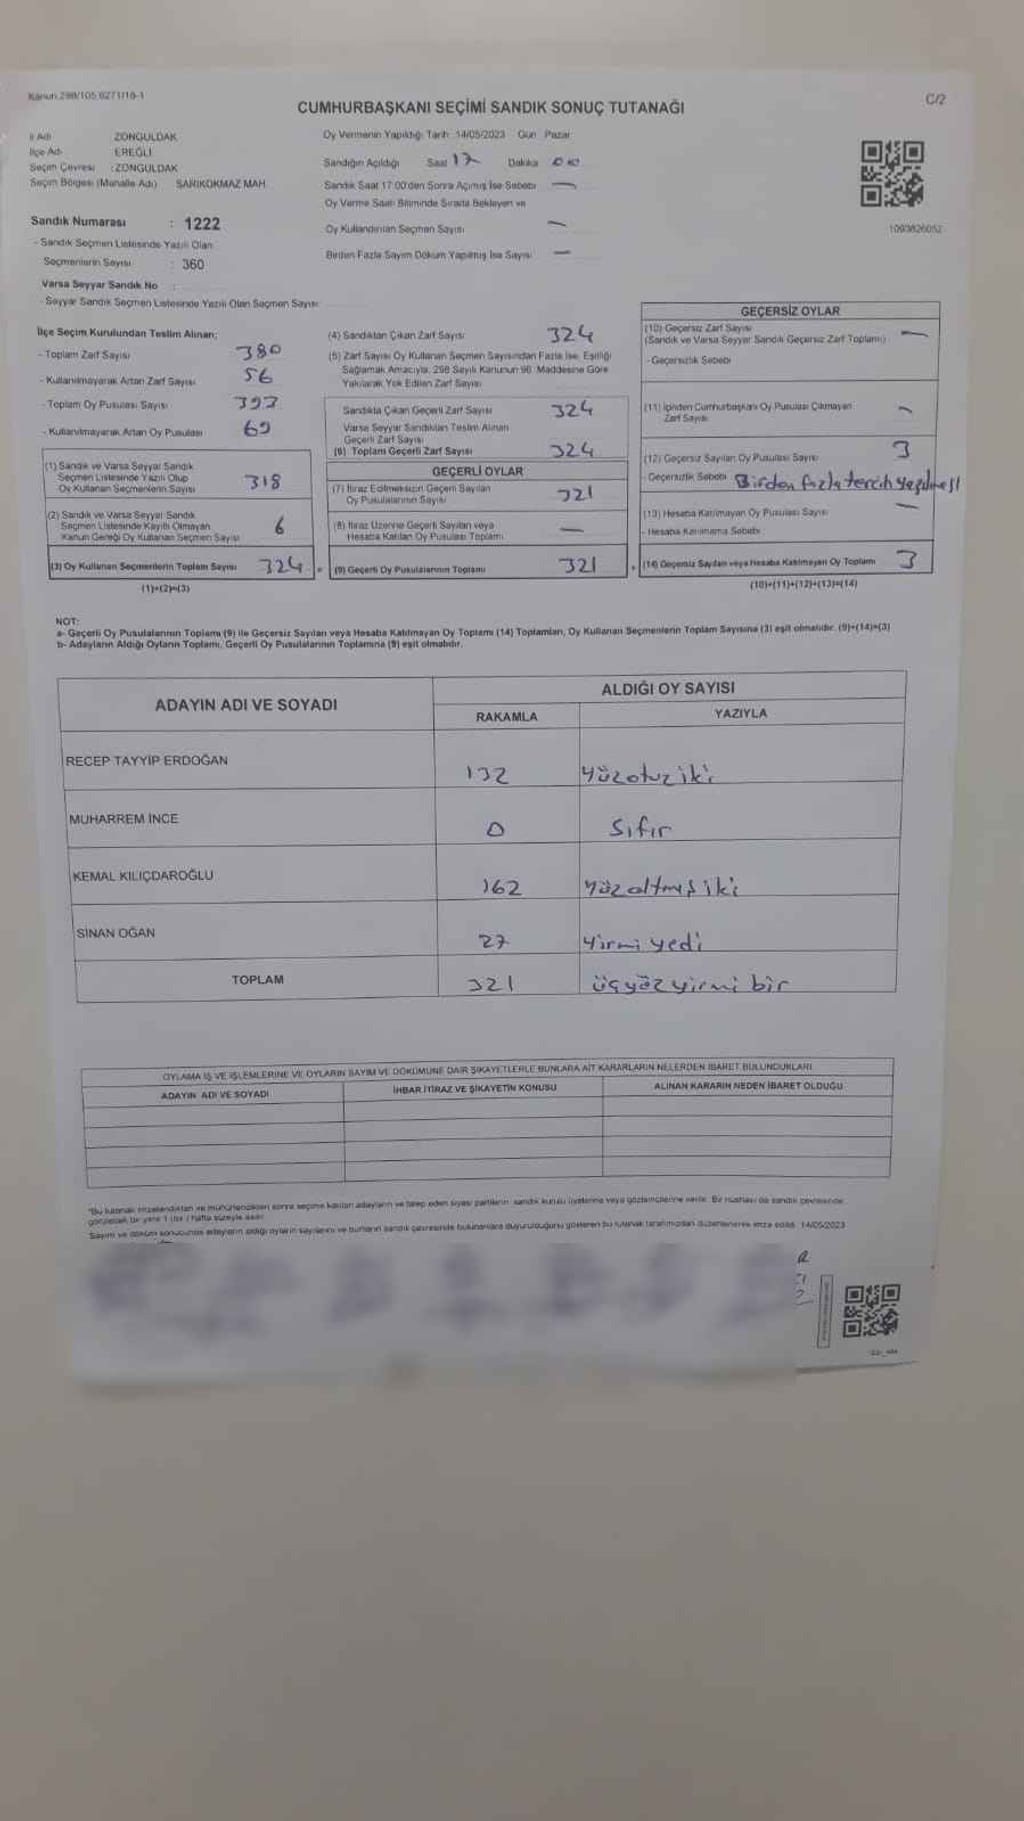 Kanun 298/105 6271/16-1
C/2
CUMHURBAŞKANI SEÇİMİ SANDIK SONUÇ TUTANAĞI
İl Adı ZONGULDAK
İlçe Adı EREĞLİ
Seçim Çevresi : ZONGULDAK
Seçim Bölgesi (Mahalle Adı) SARIKOKMAZ MAH.
Oy Vermenin Yapıldığı Tarih 14/05/2023 Gün Pazar
Sandığın Açıldığı Saat 17 Dakika 00
Sandık Saat 17:00'den Sonra Açılmış İse Sebebi —
Oy Verme Saati Bitiminde Sırada Bekleyen ve
Oy Kullandırılan Seçmen Sayısı —
Birden Fazla Sayım Döküm Yapılmış İse Sayısı —
1093826052
Sandık Numarası : 1222
- Sandık Seçmen Listesinde Yazılı Olan
Seçmenlerin Sayısı : 360
Varsa Seyyar Sandık No :
- Seyyar Sandık Seçmen Listesinde Yazılı Olan Seçmen Sayısı
İlçe Seçim Kurulundan Teslim Alınan;
- Toplam Zarf Sayısı 380
- Kullanılmayarak Artan Zarf Sayısı 56
- Toplam Oy Pusulası Sayısı 393
- Kullanılmayarak Artan Oy Pusulası 69
(1) Sandık ve Varsa Seyyar Sandık
Seçmen Listesinde Yazılı Olup
Oy Kullanan Seçmenlerin Sayısı 318
(2) Sandık ve Varsa Seyyar Sandık
Seçmen Listesinde Kayıtlı Olmayan
Kanun Gereği Oy Kullanan Seçmen Sayısı 6
(3) Oy Kullanan Seçmenlerin Toplam Sayısı 324
(1)+(2)=(3)
(4) Sandıktan Çıkan Zarf Sayısı 324
(5) Zarf Sayısı Oy Kullanan Seçmen Sayısından Fazla İse, Eşitliği
Sağlamak Amacıyla, 298 Sayılı Kanunun 98. Maddesine Göre
Yakılarak Yok Edilen Zarf Sayısı
Sandıkta Çıkan Geçerli Zarf Sayısı 324
Varsa Seyyar Sandıktan Teslim Alınan
Geçerli Zarf Sayısı
(6) Toplam Geçerli Zarf Sayısı 324
GEÇERLİ OYLAR
(7) İtiraz Edilmeksizin Geçerli Sayılan
Oy Pusulalarının Sayısı 321
(8) İtiraz Üzerine Geçerli Sayılan veya
Hesaba Katılan Oy Pusulası Toplamı —
= (9) Geçerli Oy Pusulalarının Toplamı 321
GEÇERSİZ OYLAR
(10) Geçersiz Zarf Sayısı
(Sandık ve Varsa Seyyar Sandık Geçersiz Zarf Toplamı) —
- Geçersizlik Sebebi
(11) İçinden Cumhurbaşkanı Oy Pusulası Çıkmayan
Zarf Sayısı —
(12) Geçersiz Sayılan Oy Pusulası Sayısı 3
- Geçersizlik Sebebi Birden fazla tercih yapılması
(13) Hesaba Katılmayan Oy Pusulası Sayısı —
- Hesaba Katılmama Sebebi
+ (14) Geçersiz Sayılan veya Hesaba Katılmayan Oy Toplamı 3
(10)+(11)+(12)+(13)=(14)
NOT:
a- Geçerli Oy Pusulalarının Toplamı (9) ile Geçersiz Sayılan veya Hesaba Katılmayan Oy Toplamı (14) Toplamları, Oy Kullanan Seçmenlerin Toplam Sayısına (3) eşit olmalıdır. (9)+(14)=(3)
b- Adayların Aldığı Oyların Toplamı, Geçerli Oy Pusulalarının Toplamına (9) eşit olmalıdır.
ADAYIN ADI VE SOYADI
ALDIĞI OY SAYISI
RAKAMLA YAZIYLA
RECEP TAYYİP ERDOĞAN 132 yüzotuz iki
MUHARREM İNCE 0 Sıfır
KEMAL KILIÇDAROĞLU 162 yüz altmış iki
SİNAN OĞAN 27 yirmi yedi
TOPLAM 321 üçyüz yirmi bir
OYLAMA İŞ VE İŞLEMLERİNE VE OYLARIN SAYIM VE DÖKÜMÜNE DAİR ŞİKAYETLERLE BUNLARA AİT KARARLARIN NELERDEN İBARET BULUNDUKLARI
ADAYIN ADI VE SOYADI İHBAR İTİRAZ VE ŞİKAYETİN KONUSU ALINAN KARARIN NEDEN İBARET OLDUĞU
*Bu tutanak imzalandıktan ve mühürlendikten sonra seçime katılan adayların ve talep eden siyasi partilerin sandık kurulu üyelerine veya gözlemcilerine verilir. Bir nüshası da sandık çevresinde
görülecek bir yere 1 (bir) hafta süreyle asılır.
Sayım ve döküm sonucunda adayların aldığı oyların sayılarını ve bunların sandık çevresinde bulunanlara duyurulduğunu gösteren bu tutanak tarafımızdan düzenlenerek imza edildi. 14/05/2023